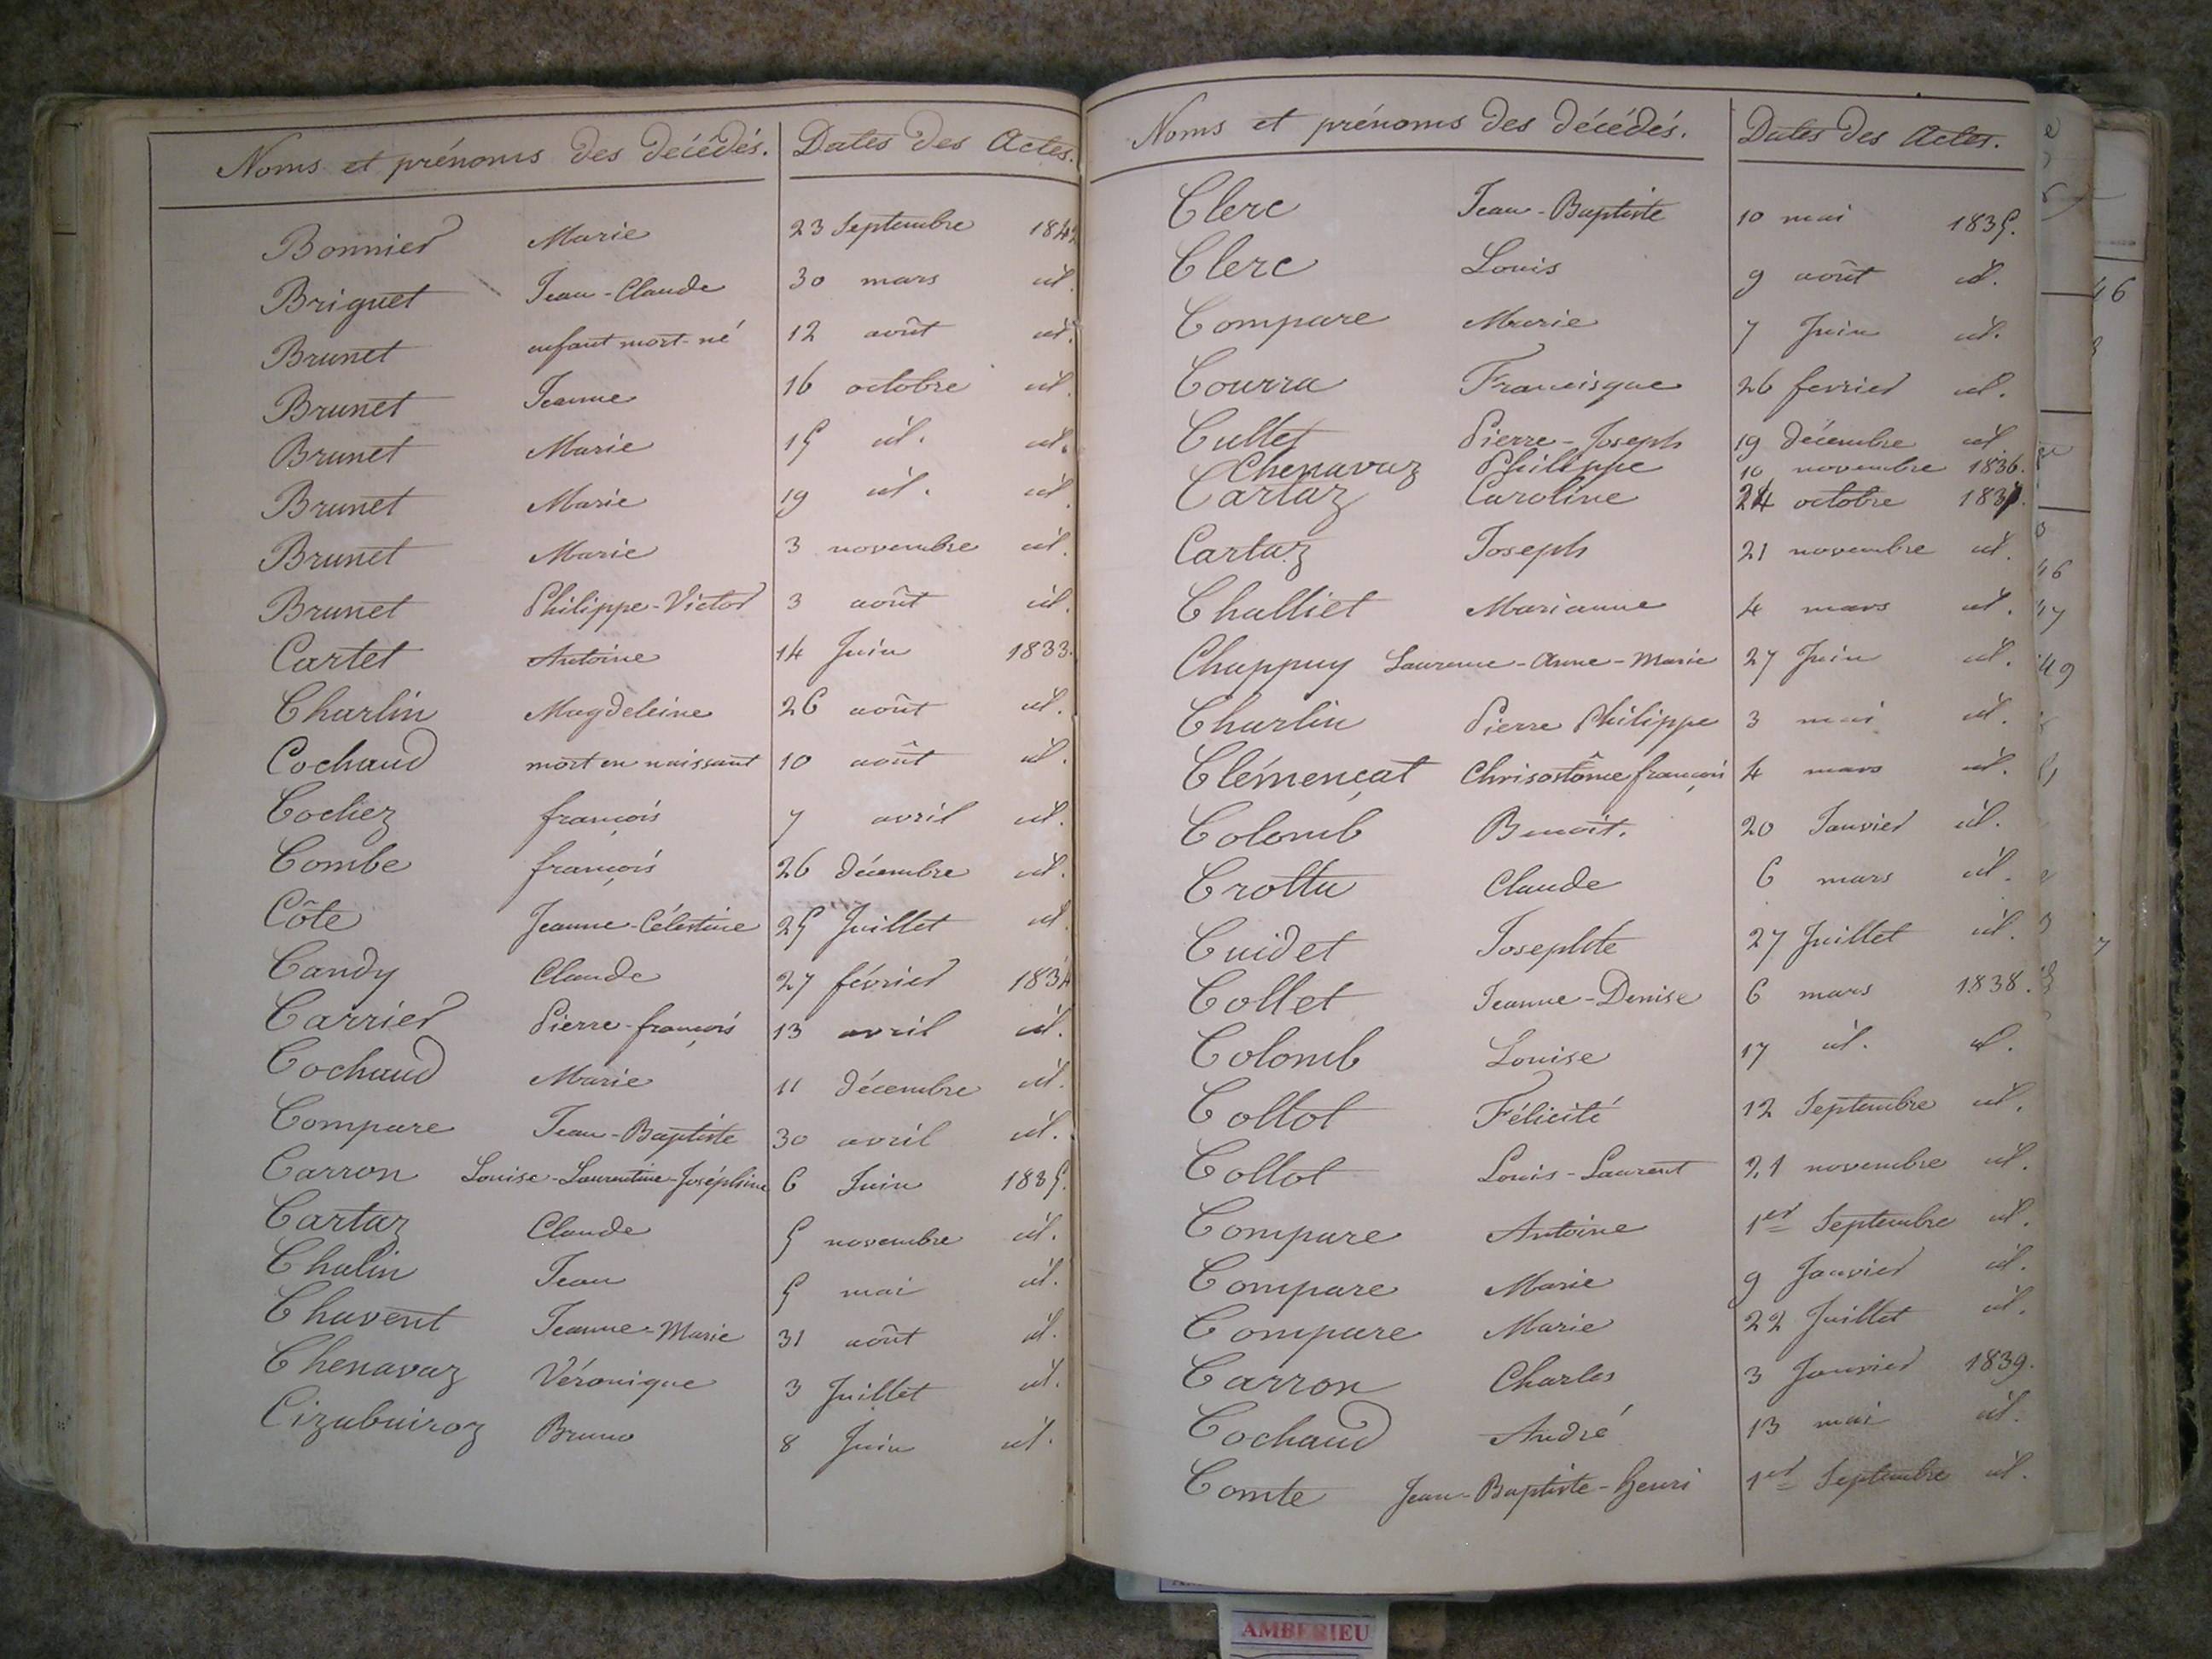 Noms et prénoms des décédés. Dates des Actes.
Bonnier Marie 23 Septembre 1842
Briguet Jean-Claude 30 mars id.
Brunet enfant mort-né 12 août id.
Brunet Jeanne 16 octobre id.
Brunet Marie 15 id. id.
Brunet Marie 19 id. id.
Brunet Marie 3 novembre id.
Brunet Philippe-Victor 3 août id.
Cartet Antoine 14 Juin 1833.
Charlin Magdeleine 26 août id.
Cochaud mort en naissant 10 août id.
Cochez françois 7 avril id.
Combe françois 26 décembre id.
Côte Jeanne-Célestine 25 Juillet id.
Candy Claude 27 février 1834
Carrier Pierre-françois 13 avril id.
Cochaud Marie 11 décembre id.
Compare Jean-Baptiste 30 avril id.
Carron Louise-Laurentine-Joséphine 6 Juin 1835.
Cartaz Claude 5 novembre id.
Chalin Jean 5 mai id.
Chavent Jeanne-Marie 31 août id.
Chenavaz Véronique 3 Juillet id.
Cizabuiroz Bruno 8 Juin id.
Noms et prénoms des décédés. Dates des Actes.
Clerc Jean-Baptiste 10 mai 1835.
Clerc Louis 9 août id.
Compare Marie 7 Juin id.
Courra Francisque 26 fevrier id.
Cullet Pierre-Joseph 19 décembre id
Chenavaz Philippe 10 novembre 1836.
Cartaz Caroline 24 octobre 1837.
Cartaz Joseph 21 novembre id.
Challiet Marianne 4 mars id.
Chappuy Laurence-Anne-Marie 27 Juin id.
Charlin Pierre Philippe 3 mai id.
Clémençat Chrisostôme françois 4 mars id.
Colomb Benoît. 20 Janvier id.
Crottu Claude 6 mars id.
Cuidet Josephte 27 Juillet id.
Collet Jeanne-Denise 6 mars 1838.
Colomb Louise 17 id. id.
Collot Félicité 12 Septembre id.
Collot Louis-Laurent 21 novembre id.
Compare Antoine 1er Septembre id.
Compare Marie 9 Janvier id.
Compare Marie 22 Juillet id.
Carron Charles 3 Janvier 1839.
Cochaud André 13 mai id.
Comte Jean-Baptiste-henri 1er Septembre id.
AMBERIEU